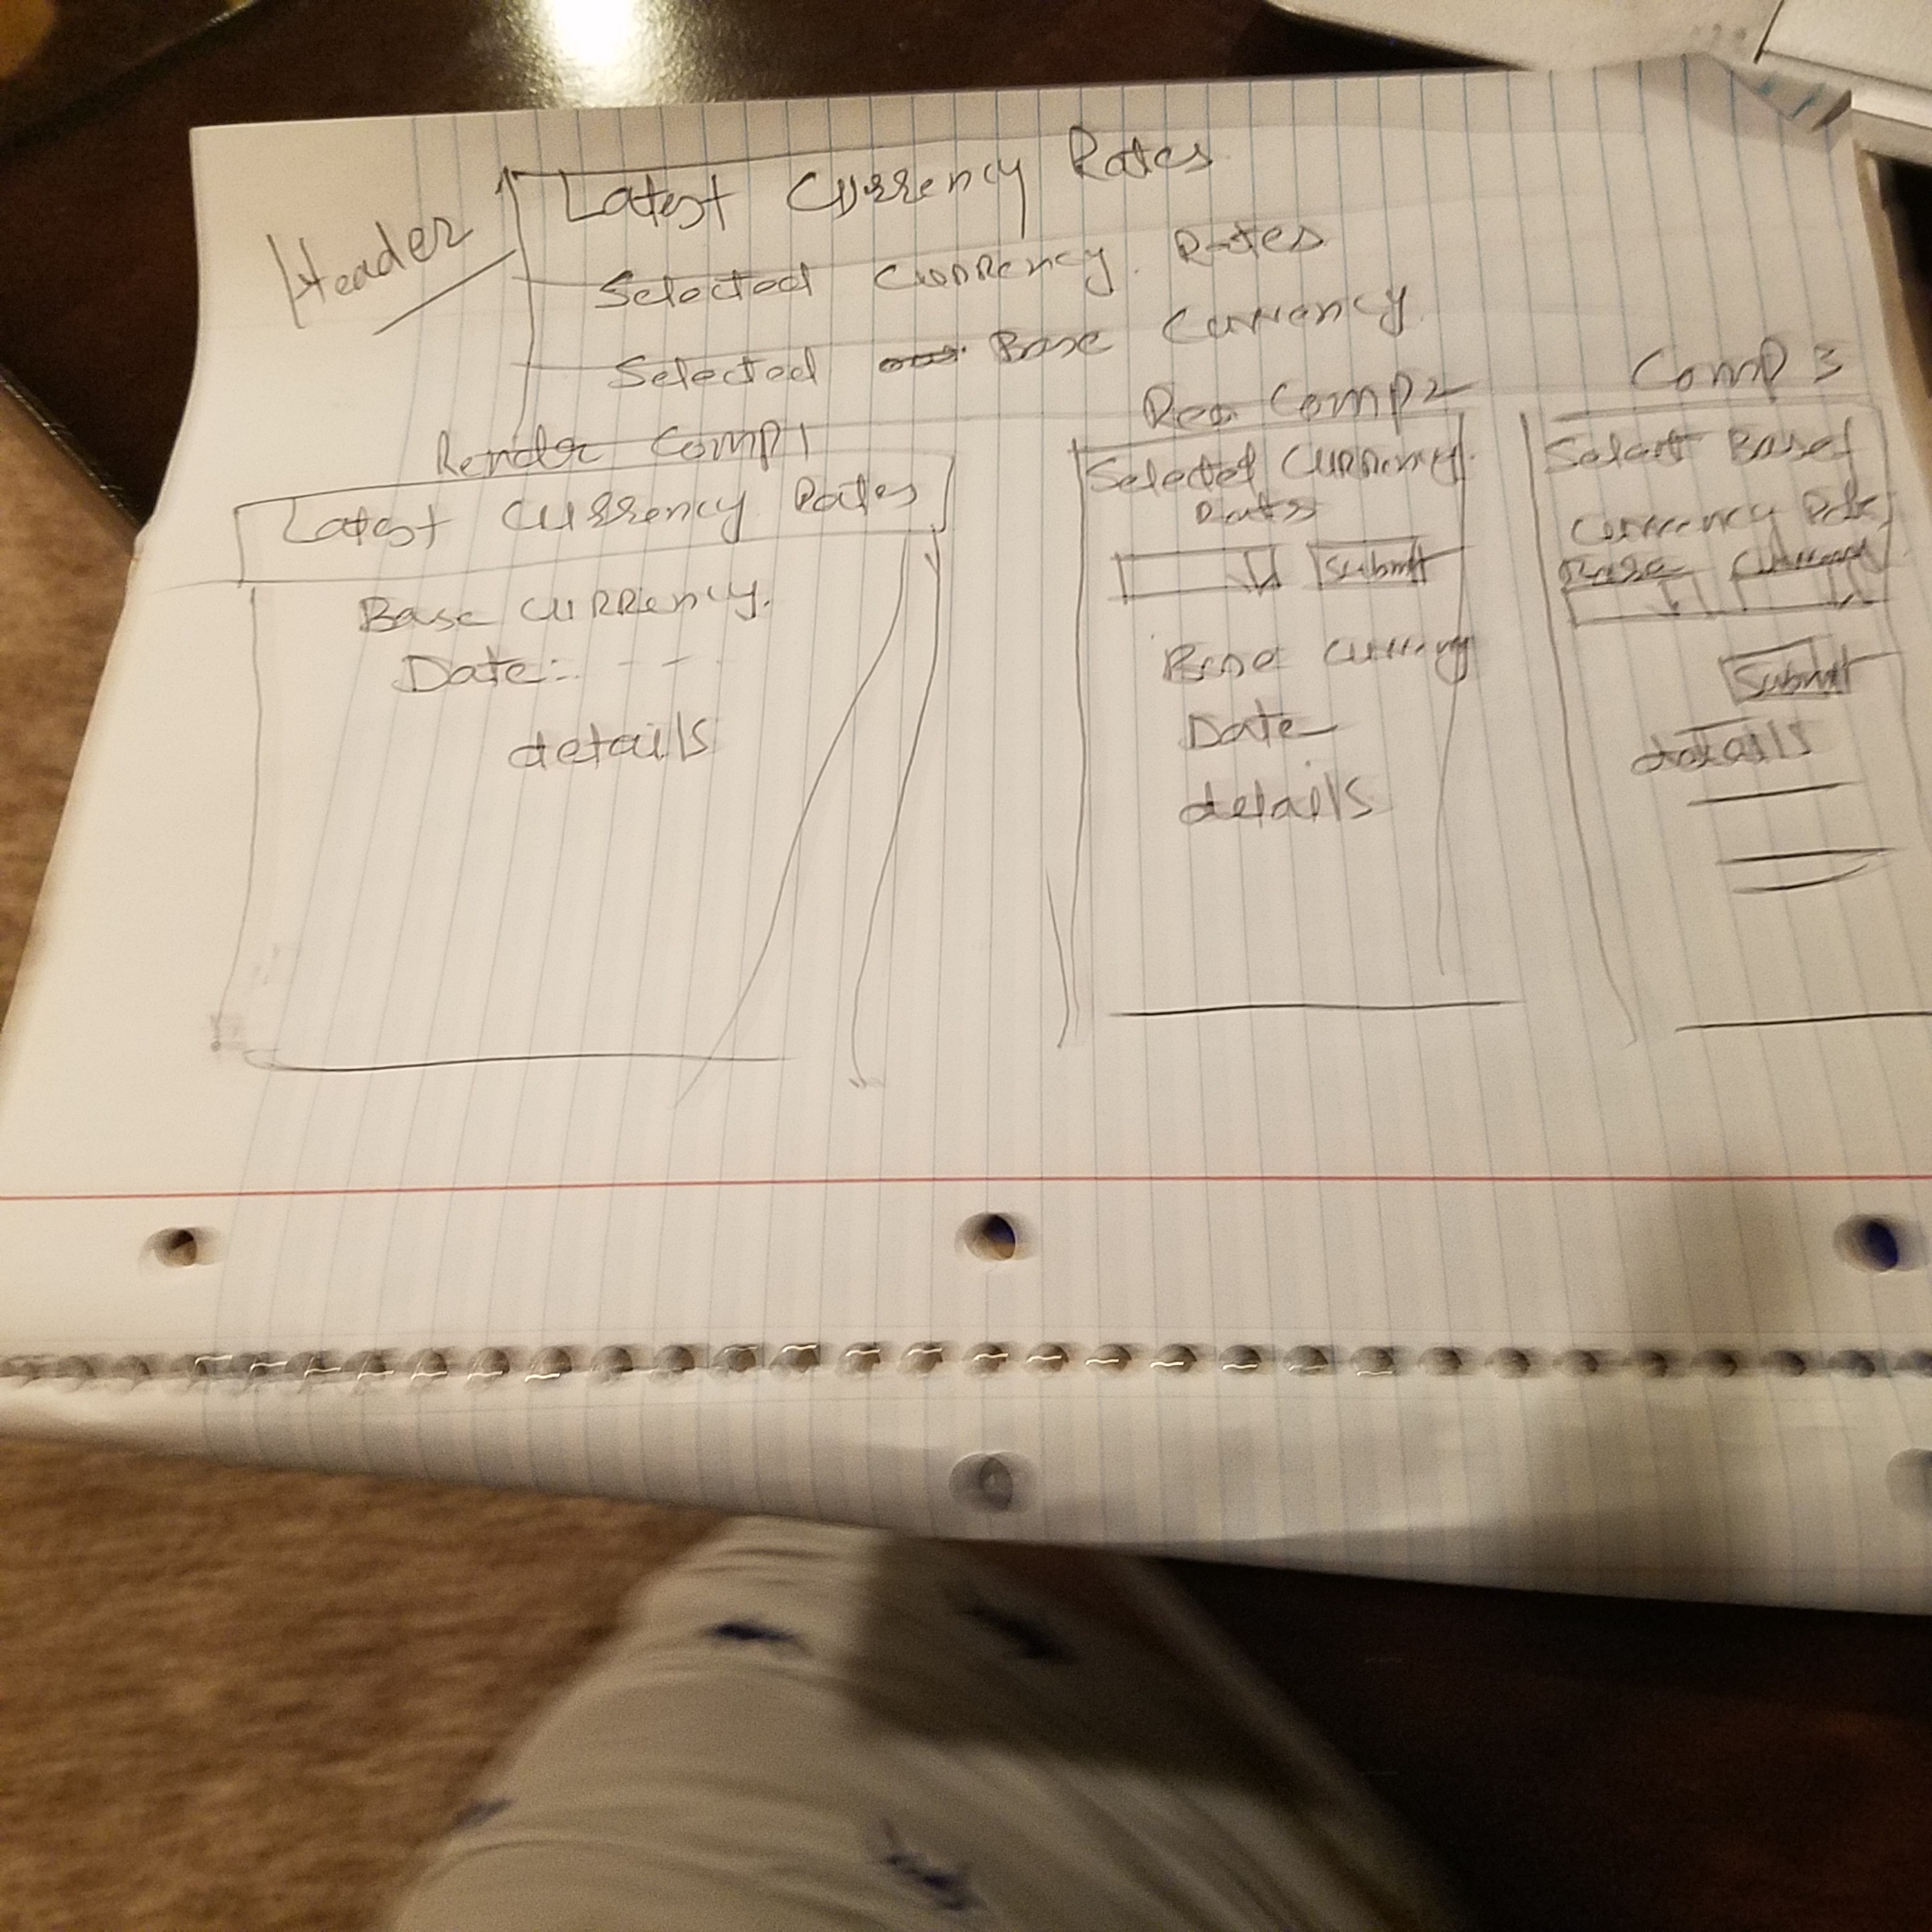 Header
Latest Currency Rates
Selected Currency Rates
Selected Base Currency
Render Comp1
Latest Currency Rates
Base Currency.
Date:- - - -
details
Comp2
Selected Currency
Rates
Submit
Base Currency
Date
details
Comp 3
Select Based
Currency
Base Currency
Submit
details